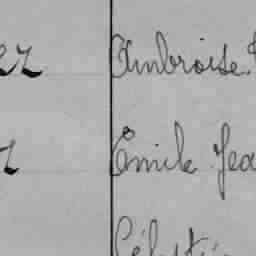 ez Ambroise
z Émile Jea
Célesti